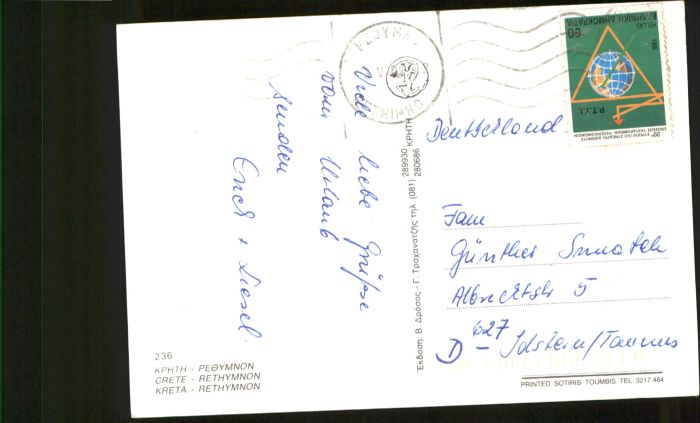 Viele liebe Grüße
vom Urlaub
senden
Erich + Liesel.
236
ΚΡΗΤΗ - ΡΕΘΥΜΝΟΝ
CRETE - RETHYMNON
KRETA - RETHYMNON
Έκδοση: Β. Δρόσος - Γ. Τραχανατζής τηλ. (081) 289930 280686 ΚΡΗΤΗ
ΡΕΘΥΜΝΟ
60
ΕΛΛΗΝΙΚΗ ΔΗΜΟΚΡΑΤΙΑ
HELLAS
1988
P.T.T.I.
Deutschland
Fam
Günther
Albrechtstr 5
627
D - Idstein/Taunus
PRINTED SOTIRIS TOUMBIS TEL. 3217.484